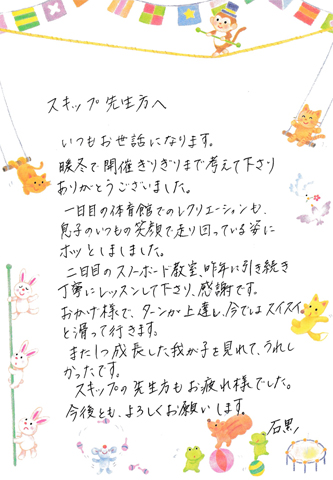 スキップ先生方へ
いつもお世話になります。
暖冬で開催ぎりぎりまで考えて下さり
ありがとうございました。
一日目の体育館でのレクリエーションも、
息子のいつもの笑顔で走り回っている姿に
ホッとしましました。
二日目のスノーボード教室、昨年に引き続き
丁寧にレッスンして下さり、感謝です。
おかげ様で、ターンが上達し、今ではスイスイ
と滑って行きます。
また1つ成長した我が子を見れて、うれし
かったです。
スキップの先生方もお疲れ様でした。
今後とも、よろしくお願いします。
石黒